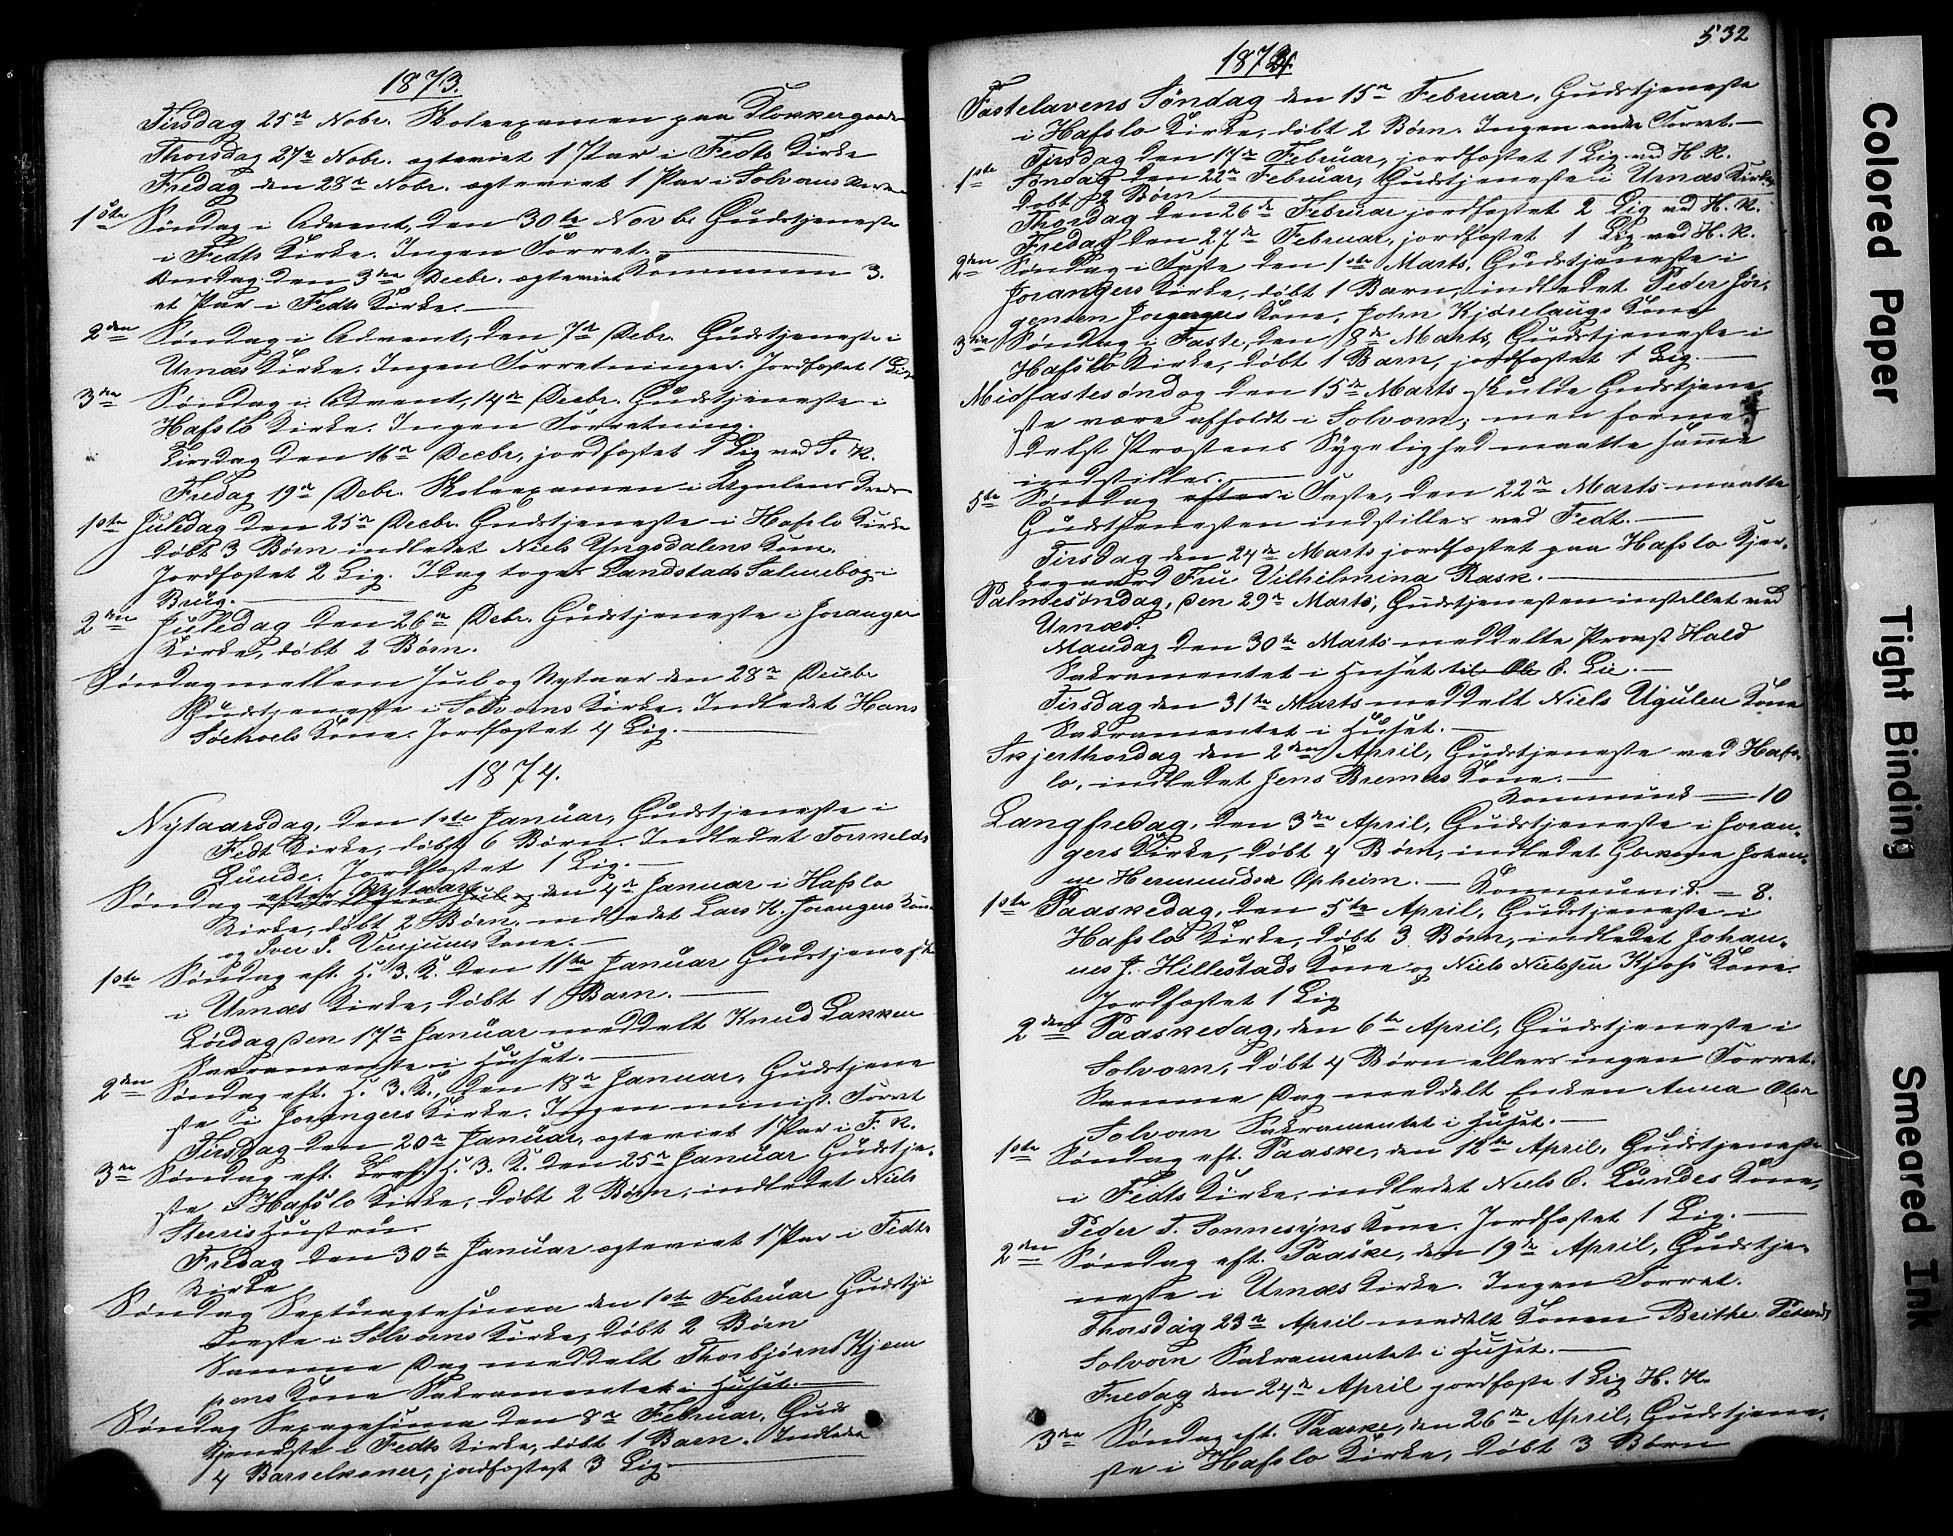 1873.
Tirsdag 25de Nobr. Skoleexamen paa
Thorsdag 27de Nobr. egteviet 1 Par i Fedts Kirke
Fredag den 28de Nobr. egteviet 1 Par i Solvorns Kirke
1ste Søndag i Advent, den 30te Novbr Gudstjeneste
i Fedts Kirke. Ingen Forret.
Onsdag den 3die Decbr. egteviet Kommun 3.
et Par i Fedts Kirke.
2den Søndag i Advent, den 7de Debr. Gudstjeneste i
Urnæs Kirke. Ingen Forretninger. Jordfæstet 1 Lig
3die Søndag i Advent, 14de Decbr. Gudstjeneste i
Hafslo Kirke. Ingen Forretning.
Tirsdag den 16de Decbr, jordfæstet 1 Lig ved S. K.
Fredag 19de Debr. Skoleexamen i
1ste Juledag den 25de Decbr. Gudstjeneste i Hafslo Kirke
døbt 3 Børn indledet Niels Yngsdalens Kone.
Jordfæstet 2 Lig. Idag toges Landstads Salmebog i
Brug.
2den Juledag den 26de Debr. Gudstjeneste i Joranger
Kirke, døbt 2 Børn.
Søndag mellem Jul og Nytaar den 28de Decebr
Gudstjeneste i Solvorns Kirke. Indledet Hans
Kone. Jordfæstet 4 Lig.
1874.
Nytaarsdag, den 1ste Januar, Gudstjeneste i
Fedt Kirke, døbt 6 Børn. Indledet
Lunde. Jordfæstet 1 Lig.
Søndag efter Nytaar den 4de Januar i Hafslo
Kirke, døbt 2 Børn, indledet Lars K. Jorangers Kone
og Iver J. Venjums Kone.
1ste Søndag eft. H. 3. K. den 11te Januar Gudstjeneste
i Urnæs Kirke, døbt 1 Barn.
Lørdag den 17de Januar meddelt Knud Lakken
Sacramentet i Huset.
2den Søndag eft. H. 3. K., den 18de Januar, Gudstjene
ste i Jorangers Kirke. Ingen minist. Forret
Tirsdag den 20de Januar, egteviet 1 Par i F. K.
3die Søndag eft. H. 3. K. den 25de Januar Gudstje-
ste i Hafslo Kirke, døbt 2 Børn, indledet Niels
Sterris Hustru.
Fredag den 30te Januar egteviet 1 Par i Fedts
Kirke
Søndag Septuagesima den 1ste Februar Gudstje
neste i Solvorns Kirke, døbt 2 Børn
Samme Dag meddelt Thorbjørns Kjæm
pens Kone Sakramentet i Huset.
Søndag Sexagesima den 8de Februar, Guds
tjeneste i Fedts Kirke, døbt 1 Barn. Indledet
4 Barselkoner, jordfæstet 3 Lig
532
1874
Fastelavens Søndag den 15de Februar, Gudstjeneste
i Hafslo Kirke, døbt 2 Børn. Ingen anden Forret.
Tirsdag den 17de Februar, jordfæstet 1 Lig ved H. K.
1ste Søndag den 22de Februar, Gudstjeneste i Urnæs Kirke
døbt 2 Børn
Thorsdag den 26de Februar jordfæstet 2 Lig ved H. K.
Fredag den 27de Februar, jordfæstet 1 Lig ved H. K.
2den Søndag i Faste den 1ste Marts, Gudstjeneste i
Jorangers Kirke, døbt 1 Barn, indledet Peder Jør,
gensen Jorangers Kone, John Kjørlaugs Kone
3die Søndag i Faste, den 8de Marts, Gudstjeneste i
Hafslo Kirke, døbt 1 Barn, jordfæstet 1 Lig.
Midfastesøndag den 15de Marts skulde Gudstjene
ste være afholdt i Solvorn, men forme
delst Provstens Sygelighed maatte samme
indstilles.
5te Søndag efter i Faste, den 22de Marts maatte
Gudstjenesten indstilles ved Fedt.
Tirsdag den 24de Marts jordfæstet paa Hafslo Kjer-
kegaard Fru Vilhelmina Rask.
Palmesøndag, den 29de Marts, Gudstjenesten instillet ved
Urnæs.
Mandag den 30te Marts meddelte Provst Hald
Sakramentet i Huset til Ole O. Lie.
Tirsdag den 31te Marts meddelt Niels Ugulen Kone
Sakramentet i Huset.
Skjerthorsdag den 2den April, Gudstjeneste ved Hafs-
lo, indledet Jens Bremers Kone.
Kommunik — 10
Langfredag, den 3die April, Gudstjeneste i Joran,
gers Kirke, døbt 4 Børn, indledet Johan,
ne Hermundsd Opheim. — Kommunik. = 8.
1ste Paaskedag, den 5te April, Gudstjeneste i
Hafslo Kirke, døbt 3 Børn, indledet Johan,
nes J. Hillestads Kone og Niels Nielssen Kjøs Kone.
Jordfæstet 1 Lig
2den Paaskedag, den 6te April, Gudstjeneste i
Solvorn, døbt 4 Børn ellers ingen Forret.
Samme Dag meddelt Enken Anna Olsd
Solvorn Sakramentet i Huset.
1ste Søndag eft. Paaske, den 12te April, Gudstjeneste
i Fedts Kirke, indledet Niels O. Lundes Kone,
Peder T. Sønnesyns Kone. Jordfæstet 1 Lig.
2den Søndag eft. Paaske, den 19de April, Gudstje-
neste i Urnæs Kirke. Ingen Forret.
Thorsdag 23de April meddelt Konen Brithe
Solvorn Sakramentet i Huset.
Fredag den 24de April jordfæste 1 Lig H. K.
3die Søndag eft. Paaske, den 26de April, Gudstjene-
ste i Hafslo Kirke, døbt 3 Børn
Colored Paper
Tight Binding
Smeared Ink